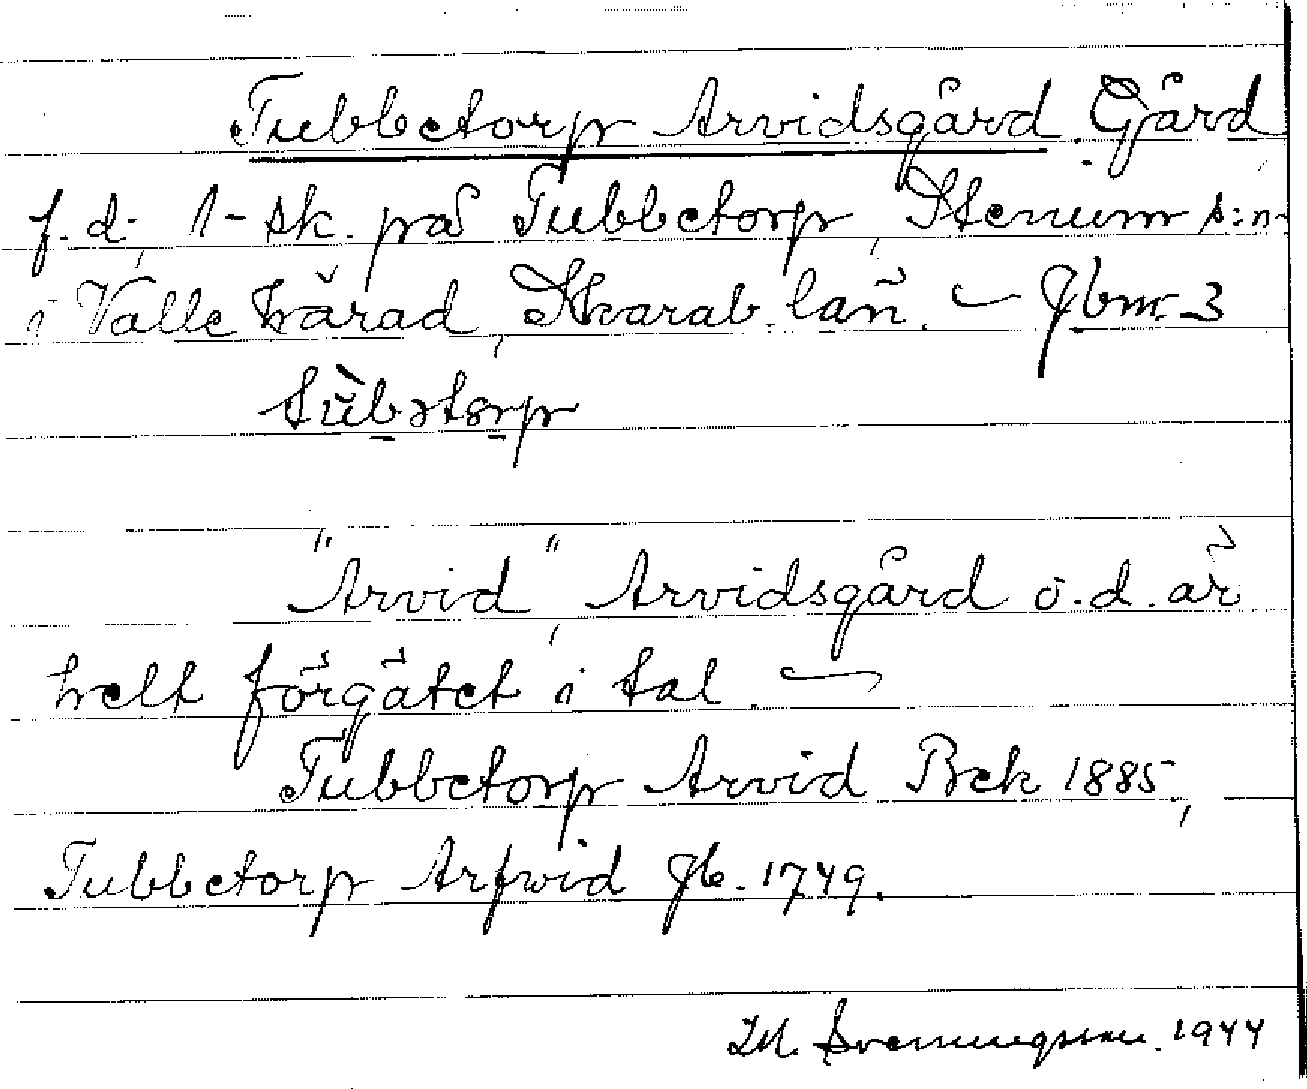 Tubbetorp Arvidsgård Gård
f.d. 1-sk. på Tubbetorp, Stenum s:n
i Valle härad, Skarab. län. — Jbnr 3
"Arvid", Arvidsgård o.d. är
helt förgätet i tal —
Tubbetorp Arvid Bek 1885,
Tubbetorp Arfwid Jb. 1749.
Svenningsson. 1944